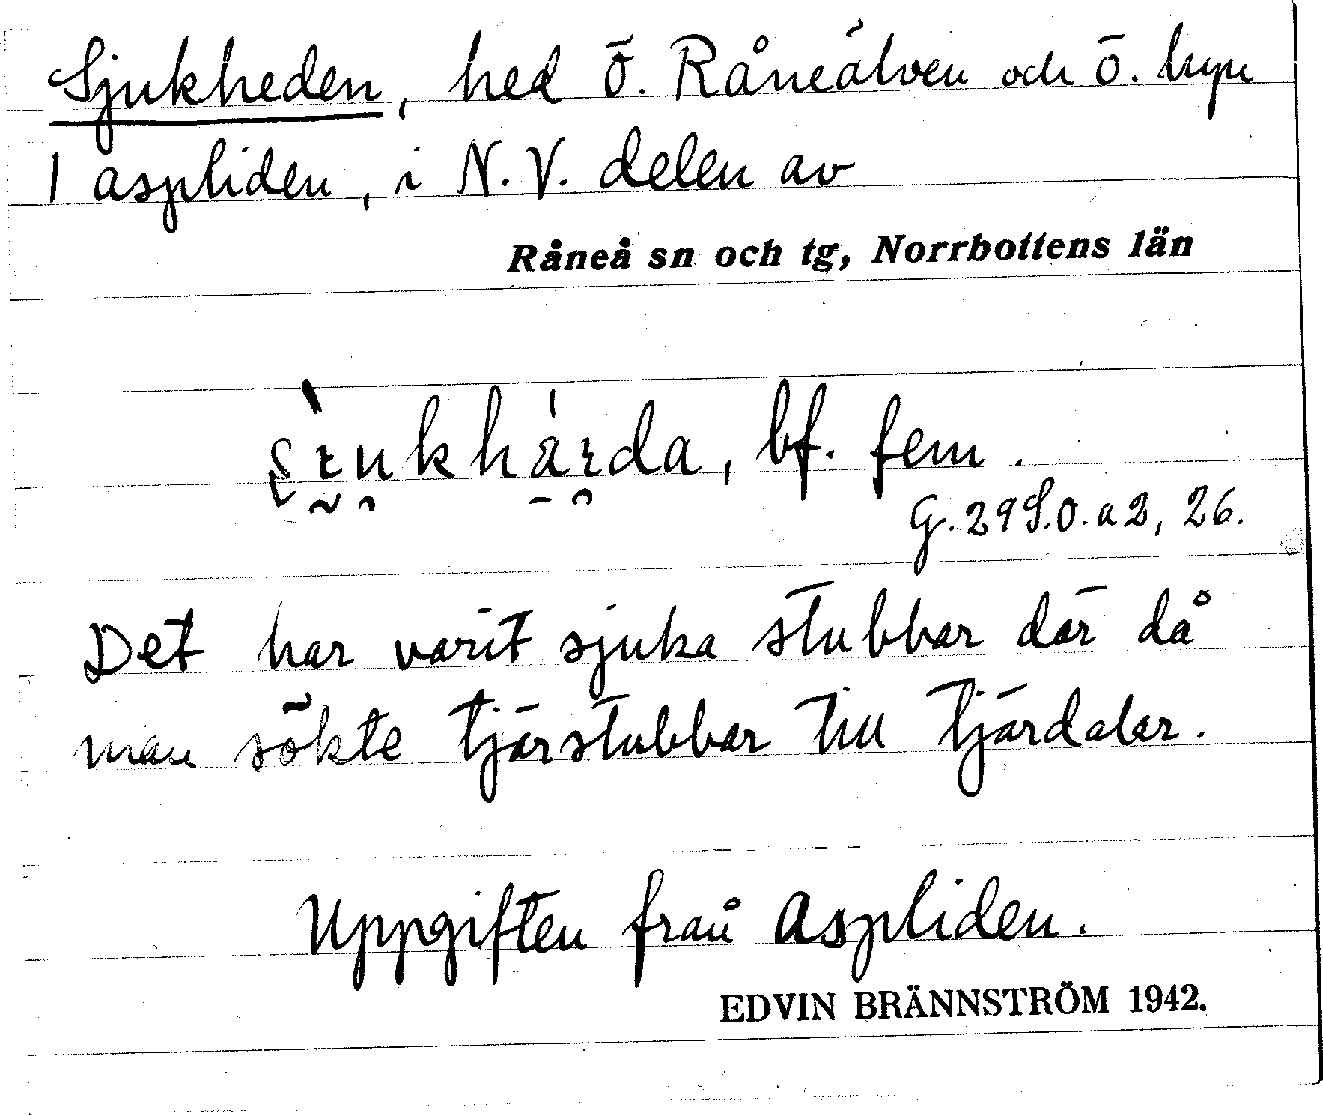 Sjukheden, hed ö. Råneälven och ö. byn
1 aspliden, i N.V. delen av
Råneå sn och tg, Norrbottens län
bf. fem.
G. 295.0.a2, 26.
Det har varit sjuka stubbar där då
man sökte tjärstubbar till tjärdalar.
Uppgiften från Aspliden.
EDVIN BRÄNNSTRÖM 1942.